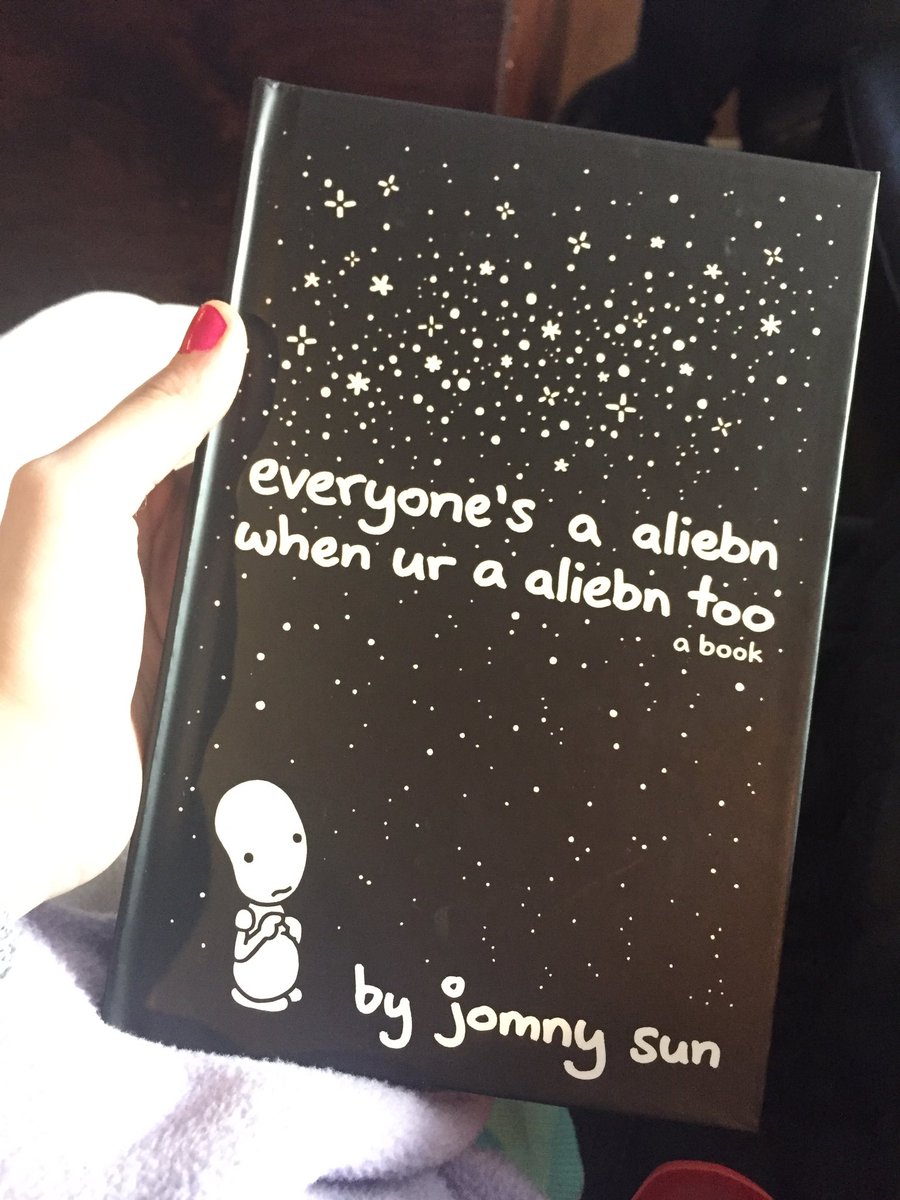 everyone's a aliebn
when ur a aliebn too
a book
by jomny sun